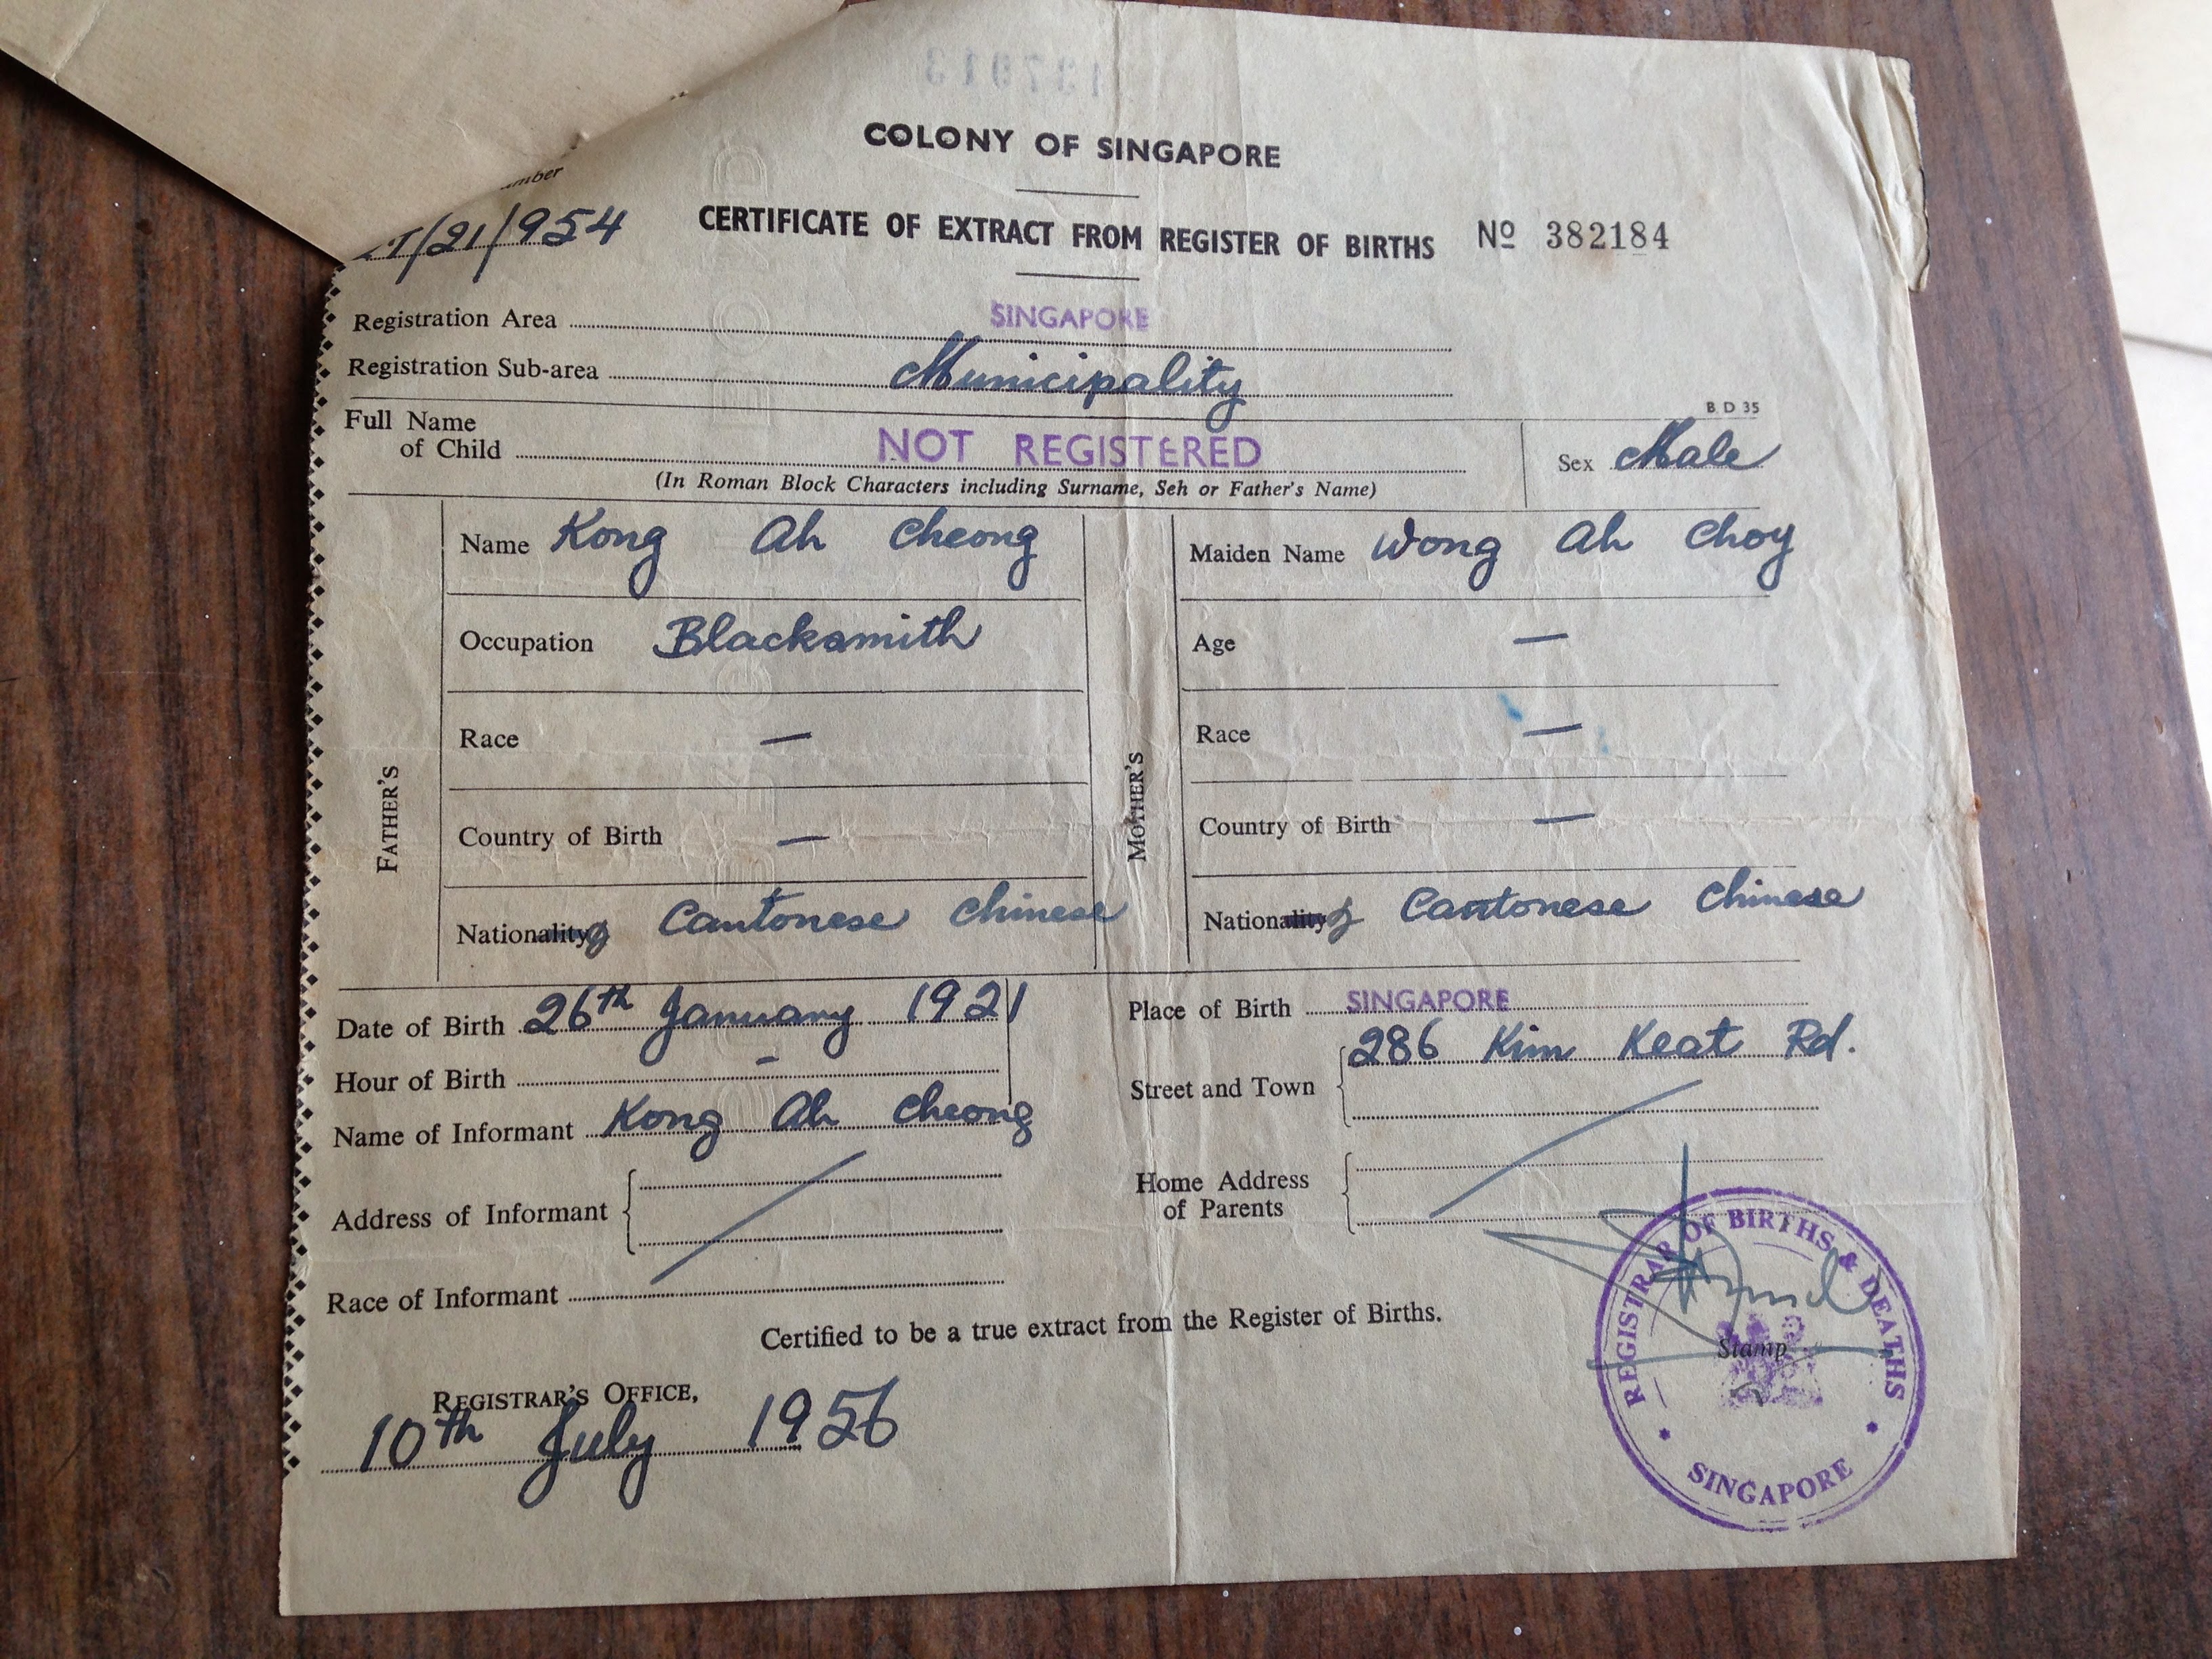 137013
COLONY OF SINGAPORE
CERTIFICATE OF EXTRACT FROM REGISTER OF BIRTHS Nº 382184
/21/954
Registration Area SINGAPORE
Registration Sub-area Municipality
B D 35
Full Name of Child NOT REGISTERED Sex Male
(In Roman Block Characters including Surname, Seh or Father's Name)
FATHER'S
Name Kong Ah Cheong
Occupation Blacksmith
Race —
Country of Birth —
Nationality Cantonese Chinese
MOTHER'S
Maiden Name Wong Ah Choy
Age —
Race —
Country of Birth —
Nationality Cantonese Chinese
Date of Birth 26th January 1921
Hour of Birth -
Name of Informant Kong Ah Cheong
Address of Informant
Race of Informant
Place of Birth SINGAPORE
Street and Town 286 Kim Keat Rd.
Home Address of Parents
Certified to be a true extract from the Register of Births.
REGISTRAR'S OFFICE,
10th July 1956
Stamp
REGISTRAR OF BIRTHS & DEATHS
SINGAPORE